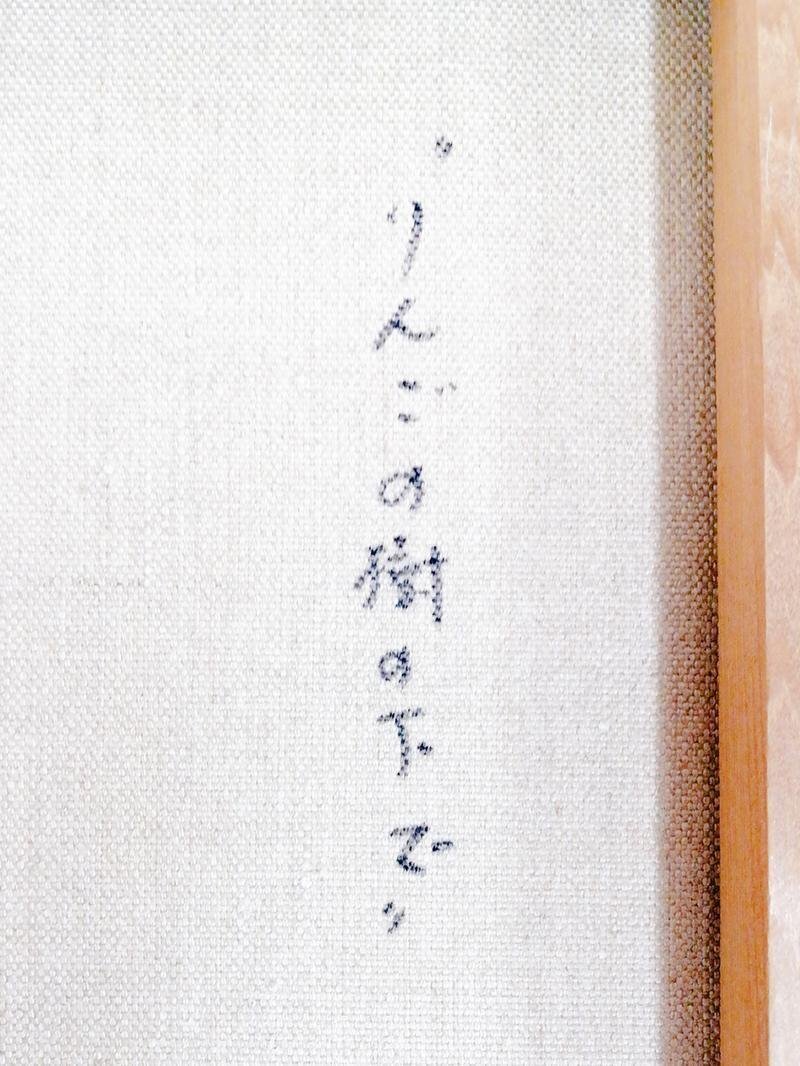 "りんごの樹の下で"